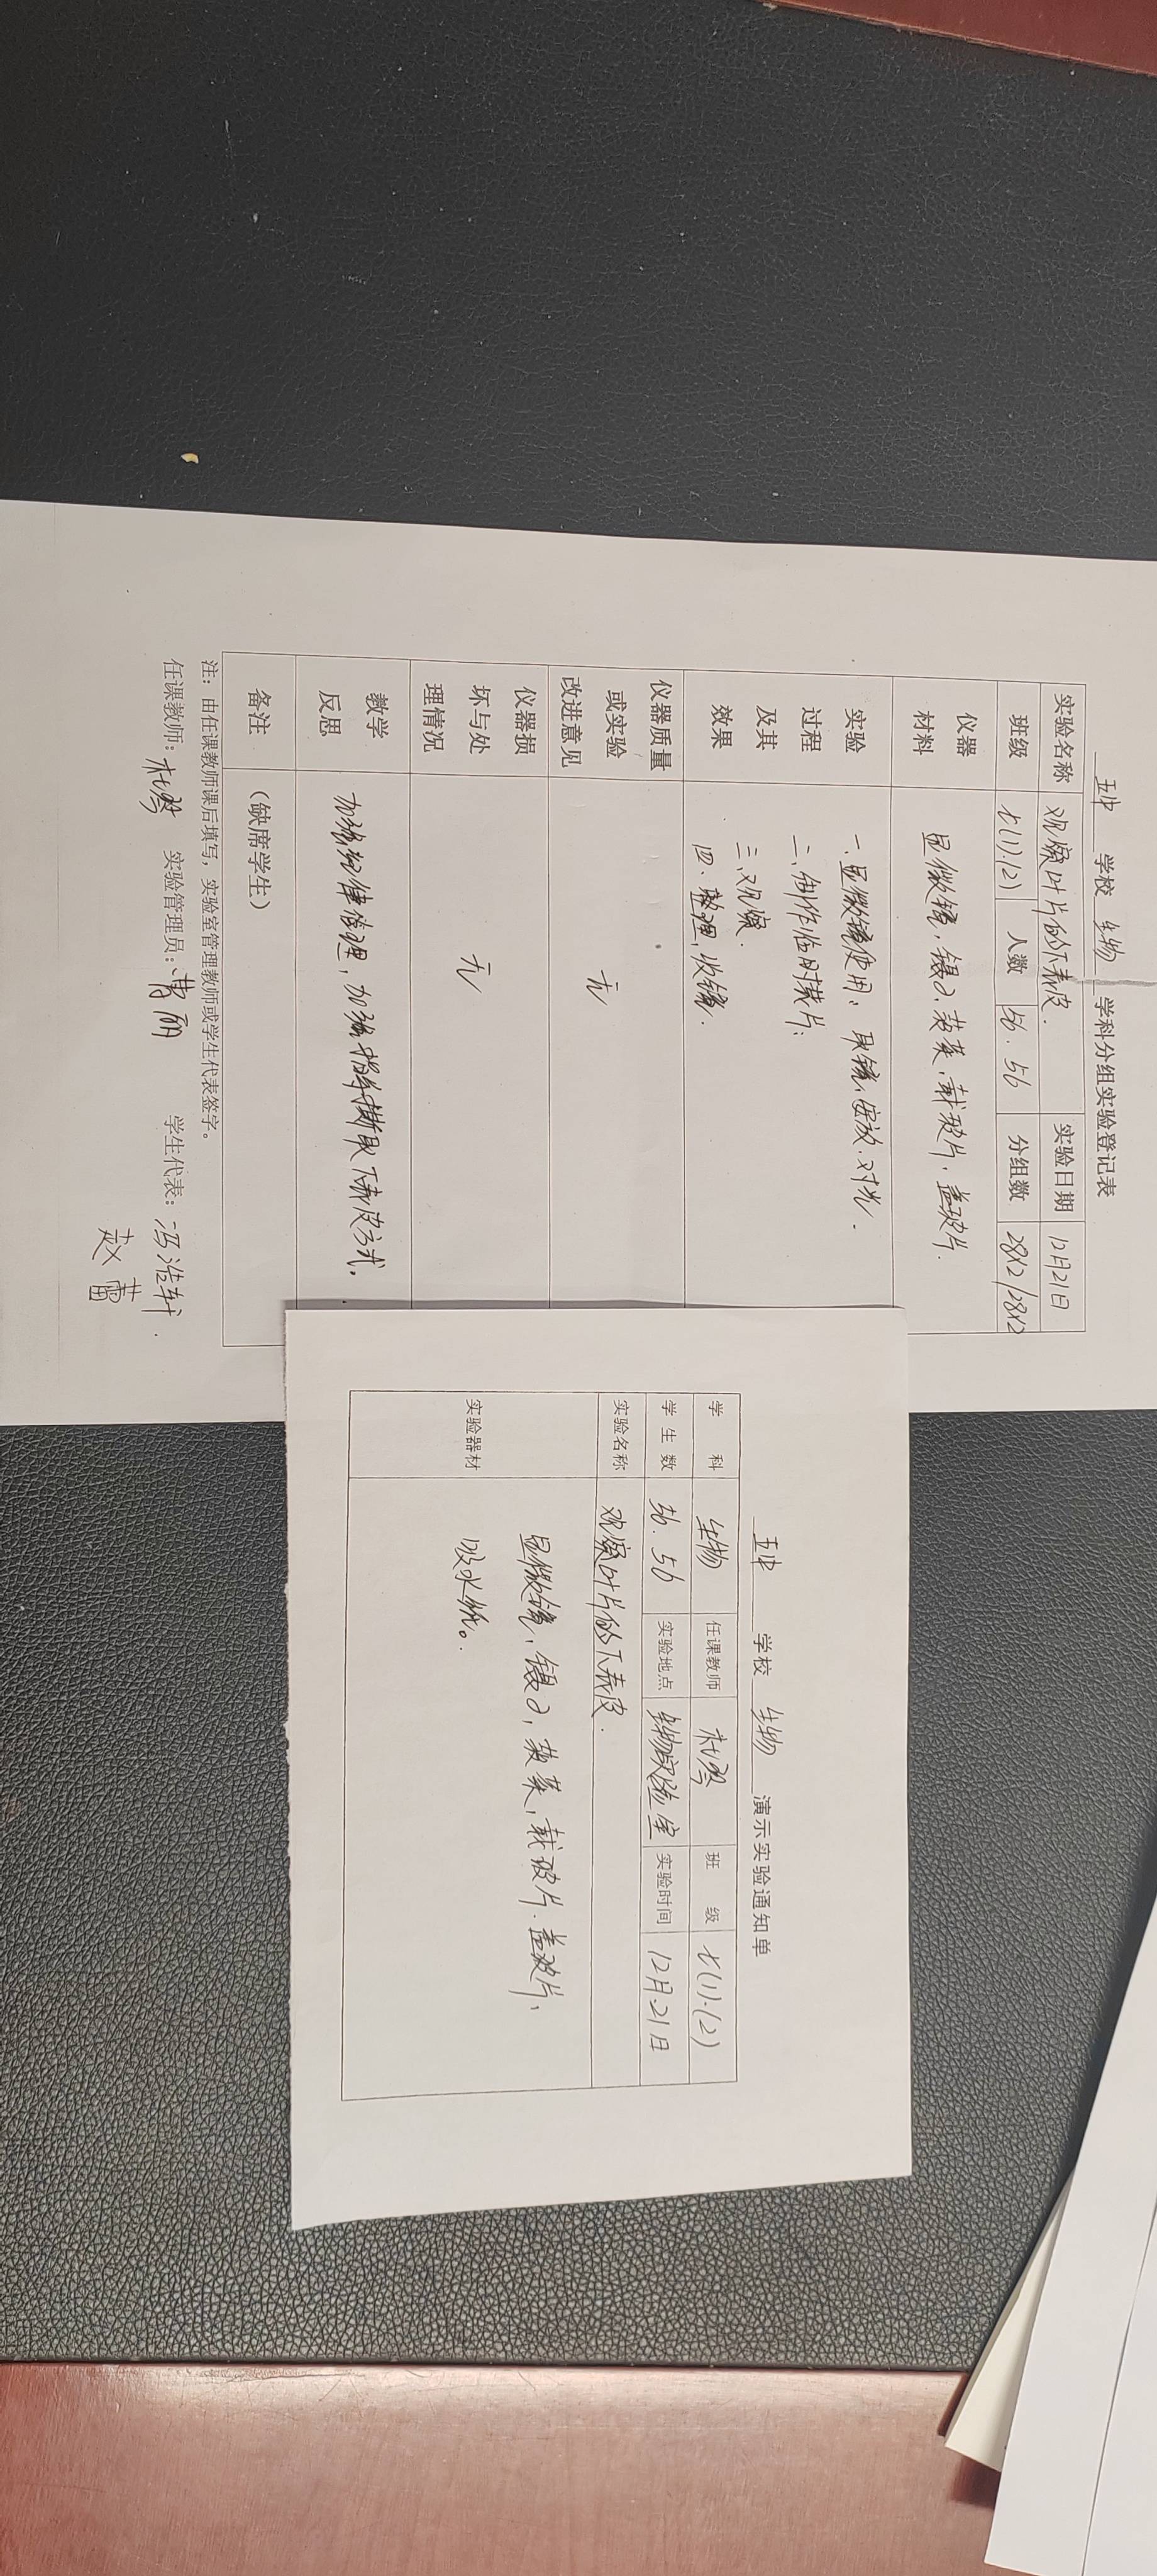 五中 学校 生物 学科分组实验登记表
实验名称 观察叶片的下表皮. 实验日期 12月21日
班级 七(1).(2) 人数 56.56 分组数 28×2/28×2
仪器材料 显微镜、镊子、菠菜、载玻片、盖玻片.
实验过程及其效果
一、显微镜使用: 取镜、安放、对光.
二、制作临时装片:
三、观察.
四、整理, 收镜.
仪器质量或实验改进意见 无
仪器损坏与处理情况 无
教学反思 加强纪律管理, 加强指导撕取下表皮方式。
备注 (缺席学生)
注: 由任课教师课后填写, 实验室管理教师或学生代表签字。
任课教师: 杜 实验管理员: 曹丽 学生代表: 冯浩轩.
赵蕾
五中 学校 生物 演示实验通知单
学科 生物 任课教师 杜 班级 七(1).(2)
学生数 56.56 实验地点 生物实验室 实验时间 12月.21日
实验名称 观察叶片的下表皮.
实验器材 显微镜, 镊子, 菠菜, 载玻片. 盖玻片、
吸水纸。